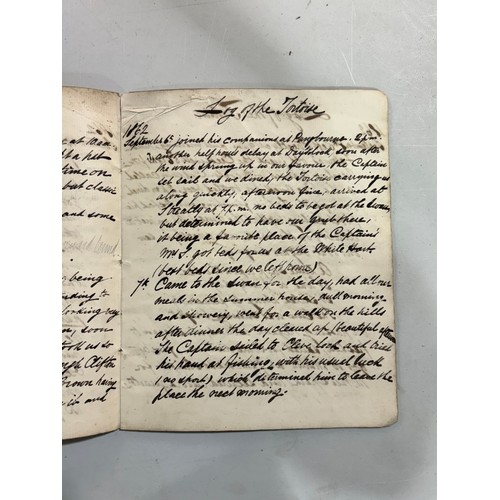 at 10 a.m.
t a hot
time on
but classic
and some
being
nding to
looking very
n, soon
took us so
ough Clifton
rown having
it and
Log of the Tortoise
1862
September 6th joined his companions at Pangbourne 2 p.m.
another half hours delay at soon after
the wind springing up in our favour the Captain
set sail and we dined, the Tortoise carrying us
along quickly, afternoon fine, arrived at
Streatly at 7 p.m. no beds to be got at the Swan,
but determined to have our Grub there,
it being a favorite place of the Captain's
Mr S. got beds for us at the White Hart
best beds since we left home)
7th Came to the Swan for the day, had all our
meals in the summer house, dull morning
and showery, went for a walk on the hills
after dinner the day cleared up (beautiful
The Captain sailed to Cleve lock and tried
his hand at fishing, with his usual luck
(no sport) which determined him to leave the
place the next morning.